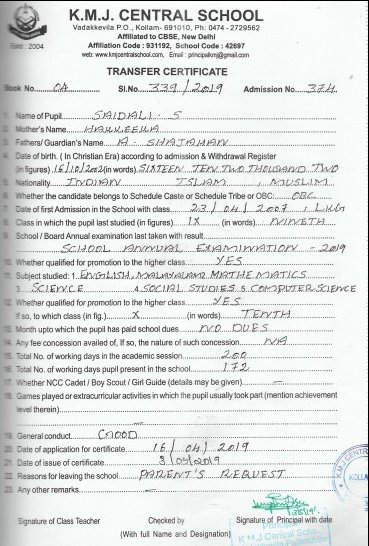 K.M.J. CENTRAL SCHOOL
Vadakkevila P.O., Kollam- 691010, Ph: 0474 - 2729562
Affiliated to CBSE, New Delhi
Estd : 2004
Affiliation Code : 931192, School Code : 42697
web: www.kmjcentralschool.com, Email : principalkmj@gmail.com
TRANSFER CERTIFICATE
Book No. 0A Sl.No. 339/2019 Admission No. 374
1. Name of Pupil SAIDALI - S
2. Mother's Name
3. Fathers/Guardian's Name A. SHAJAHAN
4. Date of birth. ( In Christian Era) according to admission & Withdrawal Register
(in figures) 16/10/2002 (in words) SIXTEEN TEN TWO THOUSAND TWO
5. Nationality INDIAN ISLAM, MUSLIM
6. Whether the candidate belongs to Schedule Caste or Schedule Tribe or OBC: OBC
7. Date of first Admission in the School with class 23/04/2007, LKG
8. Class in which the pupil last studied (in figures) IX (in words) NINETH
9. School / Board Annual examination last taken with result
SCHOOL ANNUAL EXAMINATION - 2019
10. Whether qualified for promotion to the higher class YES
11. Subject studied: 1. ENGLISH, MALAYALAM MATHEMATICS
3. SCIENCE 4. SOCIAL STUDIES 5. COMPUTER SCIENCE
12. Whether qualified for promotion to the higher class YES
If so, to which class (in fig.) X (in words) TENTH
13. Month upto which the pupil has paid school dues NO DUES
14. Any fee concession availed of, If so, the nature of such concession NA
15. Total No. of working days in the academic session 200
16. Total No. of working days pupil present in the school 172
17. Whether NCC Cadet / Boy Scout / Girl Guide (details may be given) —
18. Games played or extracurricular activities in which the pupil usually took part (mention achievement
level therein) —
19. General conduct GOOD
20. Date of application for certificate 16/04/2019
21. Date of issue of certificate 3/05/2019
22. Reasons for leaving the school PARENT'S REQUEST
23. Any other remarks —
Signature of Class Teacher Checked by Signature of Principal with date
(With full Name and Designation)
K M J Central School
K.M.J. CENTRAL